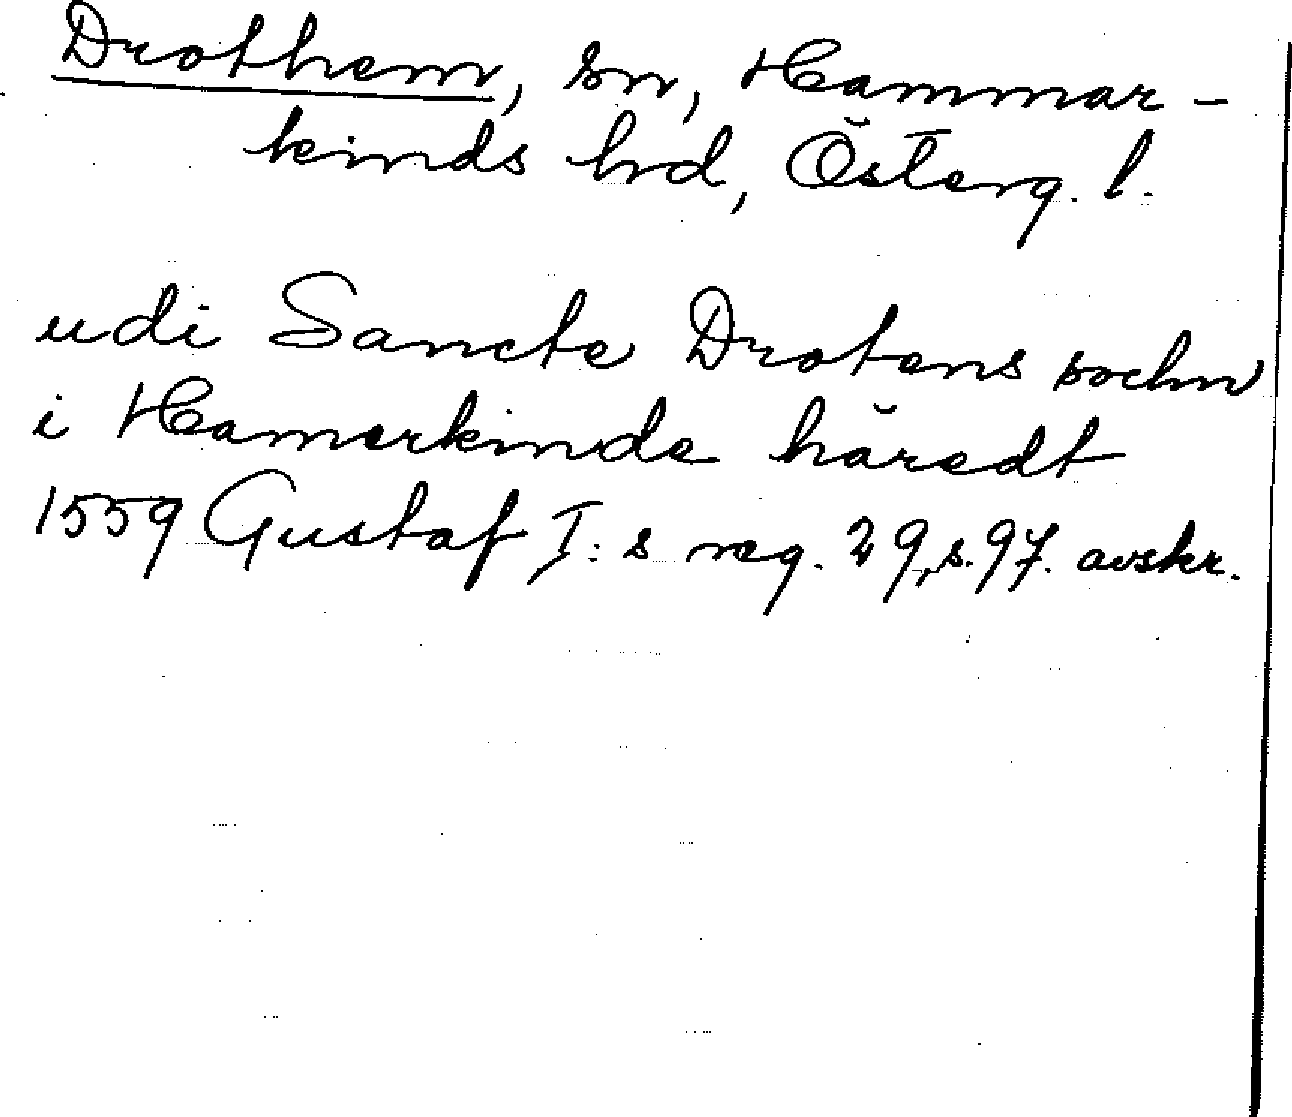 Drothem, sn, Hammar-
kinds hrd, Österg. l.
udi Sancte Drotens sochn
i Hamerkinde häredt
1559 Gustaf I:s reg. 29, s. 97. avskr.